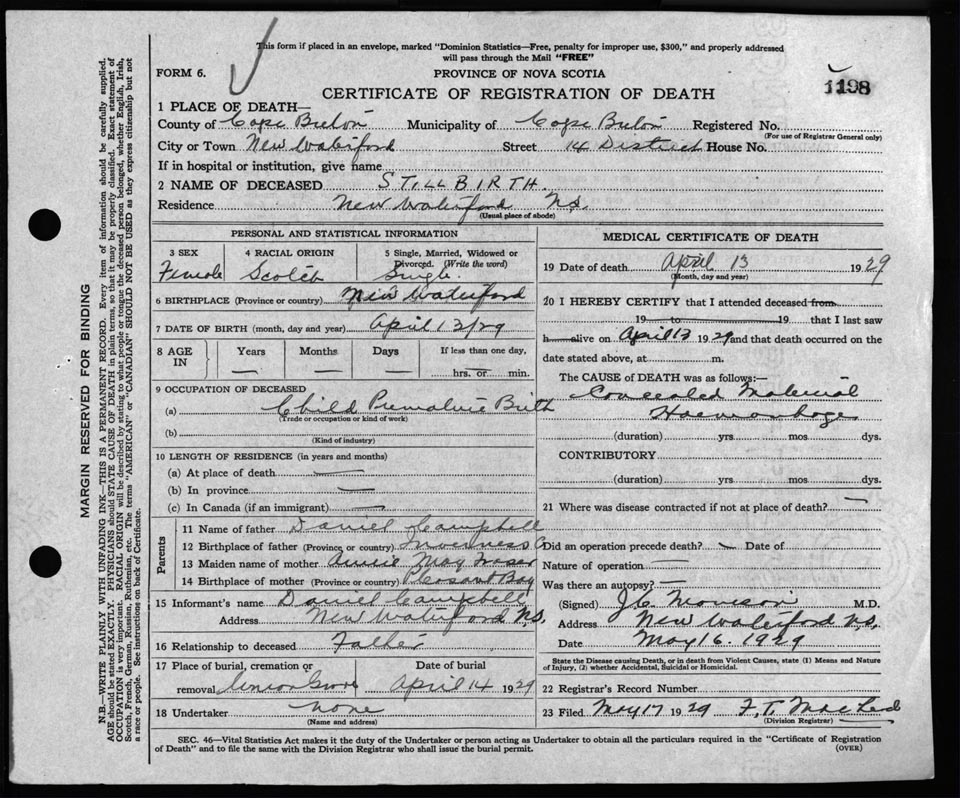 This form if placed in an envelope, marked "Dominion Statistics—Free, penalty for improper use, $300," and properly addressed
will pass through the Mail "FREE"
FORM 6.
PROVINCE OF NOVA SCOTIA
1198
CERTIFICATE OF REGISTRATION OF DEATH
1 PLACE OF DEATH—
County of Cape Breton Municipality of Cape Breton Registered No.
(For use of Registrar General only)
City or Town New Waterford Street 14 District House No.
If in hospital or institution, give name
2 NAME OF DECEASED STILLBIRTH.
Residence New Waterford N.S.
(Usual place of abode)
PERSONAL AND STATISTICAL INFORMATION
3 SEX Female
4 RACIAL ORIGIN Scotch
5 Single, Married, Widowed or Divorced. (Write the word) Single
6 BIRTHPLACE (Province or country) New Waterford
7 DATE OF BIRTH (month, day and year) April 13/29
8 AGE IN
Years — Months — Days — If less than one day, hrs. or min.
9 OCCUPATION OF DECEASED
(a) Child Premature Birth
(Trade or occupation or kind of work)
(b)
(Kind of industry)
10 LENGTH OF RESIDENCE (in years and months)
(a) At place of death —
(b) In province —
(c) In Canada (if an immigrant) —
Parents
11 Name of father Daniel Campbell
12 Birthplace of father (Province or country) Inverness Co
13 Maiden name of mother Annie May Fraser
14 Birthplace of mother (Province or country) Pleasant Bay
15 Informant's name Daniel Campbell
Address New Waterford N.S.
16 Relationship to deceased Father
17 Place of burial, cremation or removal Date of burial
April 14 1929
18 Undertaker none
(Name and address)
MEDICAL CERTIFICATE OF DEATH
19 Date of death April 13 1929
(Month, day and year)
20 I HEREBY CERTIFY that I attended deceased from
19 to 19 that I last saw
h alive on April 13 1929 and that death occurred on the
date stated above, at m.
The CAUSE of DEATH was as follows:—
Concealed Maternal
Haemorrhage
(duration) yrs. mos. dys.
CONTRIBUTORY
(duration) yrs. mos. dys.
21 Where was disease contracted if not at place of death? —
Did an operation precede death? — Date of
Nature of operation —
Was there an autopsy? —
(Signed) J.C. Morrison M.D.
Address New Waterford N.S.
Date May 16. 1929
State the Disease causing Death, or in death from Violent Causes, state (1) Means and Nature
of Injury, (2) whether Accidental, Suicidal or Homicidal.
22 Registrar's Record Number
23 Filed May 17 1929 F. T. MacLeod
(Division Registrar)
SEC. 46—Vital Statistics Act makes it the duty of the Undertaker or person acting as Undertaker to obtain all the particulars required in the "Certificate of Registration
of Death" and to file the same with the Division Registrar who shall issue the burial permit.
(OVER)
MARGIN RESERVED FOR BINDING
N.B.—WRITE PLAINLY WITH UNFADING INK—THIS IS A PERMANENT RECORD. Every item of information should be carefully supplied.
AGE should be stated EXACTLY. PHYSICIANS should STATE CAUSE OF DEATH in plain terms, so that it may be properly classified. Exact statement of
OCCUPATION is very important. RACIAL ORIGIN will be described by stating to what people or tongue the deceased person belonged, whether English, Irish,
Scotch, French, German, Russian, Ruthenian, etc. The terms "AMERICAN" or "CANADIAN" SHOULD NOT BE USED as they express citizenship but not
a race or people. See instructions on back of Certificate.